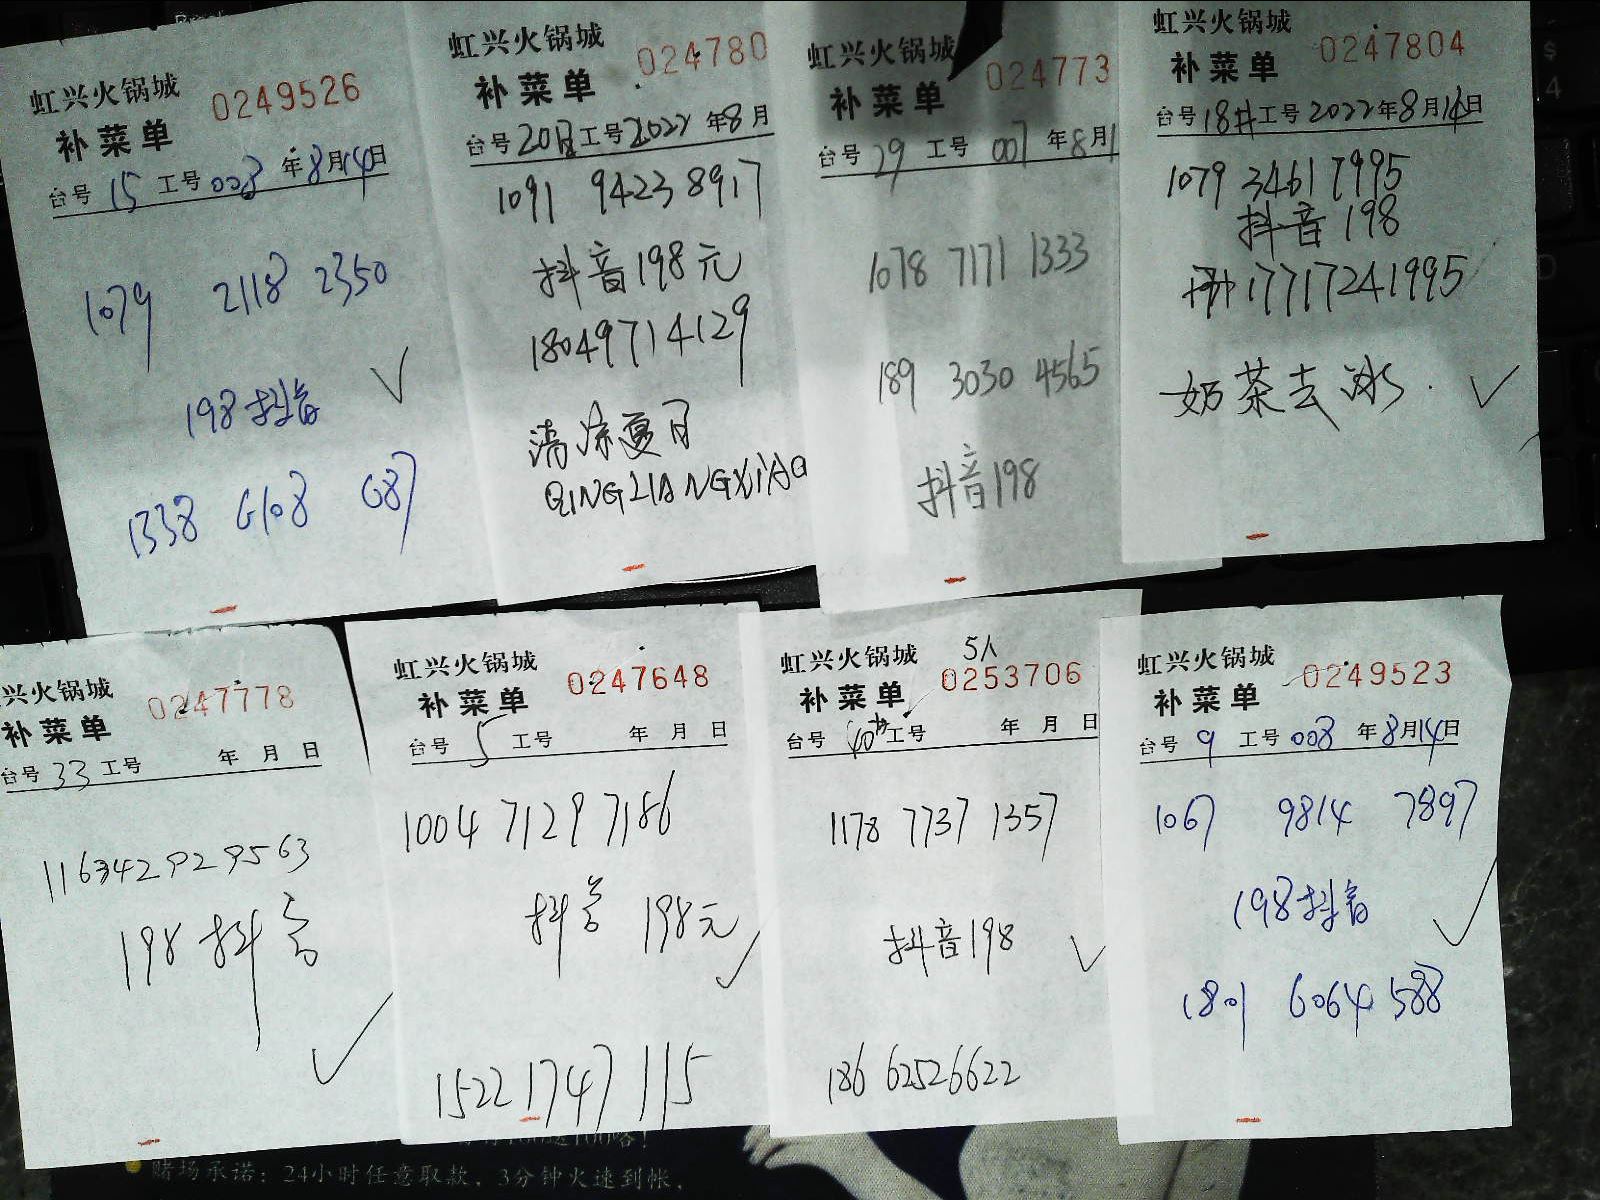 虹兴火锅城
补菜单 0249526
台号 15 工号 008 年8月14日
1079 2118 2350
198抖音
1338 6108 087
虹兴火锅城
补菜单 024780
台号 20 工号 2022 年8月
1091 9423 8917
抖音198元
18049714129
清凉夏日
QINGLIANGXIAO
虹兴火锅城
补菜单 024773
台号 29 工号 007 年8月1
1078 7171 1333
189 3030 4565
抖音198
虹兴火锅城
补菜单 0247804
台号 18# 工号 2022年8月14日
1079 3461 7995
抖音198
17717241995
奶茶去冰.
兴火锅城
补菜单 0247778
台号 33 工号 年 月 日
116342929563
198 抖音
虹兴火锅城
补菜单 0247648
台号 5 工号 年 月 日
1004 7129 7186
抖音 198元
1522 1747 115
5人
虹兴火锅城
补菜单 0253706
台号 40 工号 年 月 日
1178 7737 1357
抖音198
186 62526622
虹兴火锅城
补菜单 0249523
台号 9 工号 008 年8月14日
1067 9814 7897
198抖音
1801 6064 588
赌场承诺：24小时任意取款，3分钟火速到帐，